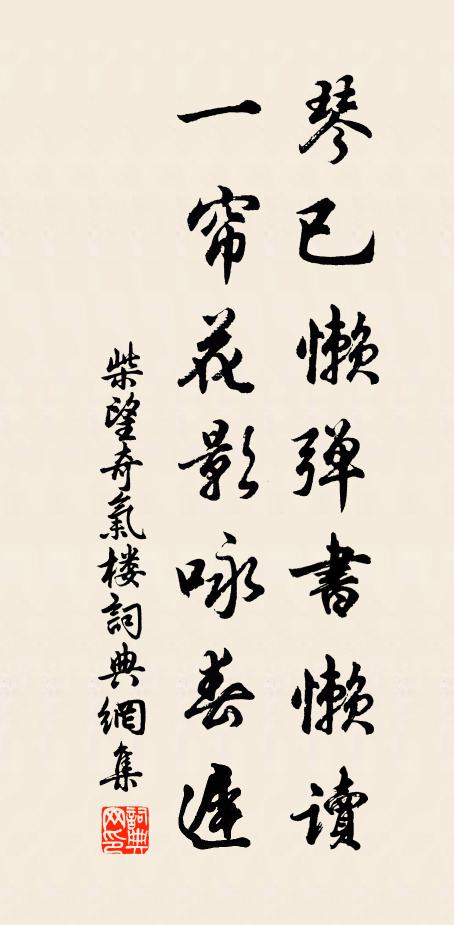 琴已懒弹書懒讀
一帘花影咏春遲
柴望奇氣楼詞典網集
詞典网印